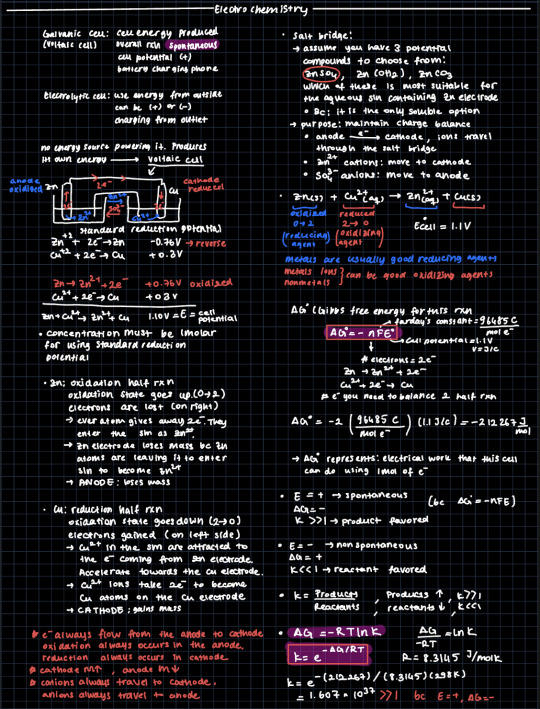 Electrochemistry
Galvanic Cell: cell energy produced
(Voltaic cell) overall rxn spontaneous
cell potential (+)
battery charging phone
Electrolytic cell: use energy from outside
can be (+) or (-)
charging from outlet
no energy source powering it. Produces
it own energy → voltaic cell
anode
oxidized
Zn
2e⁻
Zn²⁺
SO₄²⁻
Cu
cathode
reduced
standard reduction potential
Zn⁺² + 2e⁻ → Zn -0.76V → reverse
Cu⁺² + 2e → Cu +0.3V
Zn → Zn²⁺ + 2e +0.76V oxidized
Cu²⁺ + 2e → Cu +0.3V
Zn + Cu²⁺ → Zn²⁺ + Cu 1.10V = E = cell potential
• concentration must be 1molar
for using standard reduction
potential
• Zn: oxidation half rxn
oxidation state goes up (0→2)
electrons are lost (on right)
→ ever atom gives away 2e⁻. They
enter the sln as Zn²⁺
→ Zn electrode loses mass bc Zn
atoms are leaving it to enter
sln to become Zn²⁺
→ ANODE: loses mass
• Cu: reduction half rxn
oxidation state goes down (2→0)
electrons gained (on left side)
→ Cu²⁺ in the sln are attracted to
the e⁻ coming from Zn electrode.
Accelerate towards the Cu electrode.
→ Cu²⁺ ions take 2e⁻ to become
Cu atoms on the Cu electrode
→ CATHODE: gains mass
e⁻ always flow from the anode to cathode
oxidation always occurs in the anode,
reduction always occurs in cathode.
cathode m↑, anode m↓
cations always travel to cathode,
anions always travel to anode
• Salt bridge:
→ assume you have 3 potential
compounds to choose from:
ZnSO₄, Zn(OH)₂, ZnCO₃
which of these is most suitable for
the aqueous sln containing Zn electrode
• Bc: it is the only soluble option
→ purpose: maintain charge balance
• anode e⁻→ cathode, ions travel
through the salt bridge
• Zn²⁺ cations: move to cathode
• SO₄²⁻ anions: move to anode
• Zn(s) + Cu²⁺(aq) → Zn²⁺(aq) + Cu(s)
oxidized reduced Ecell = 1.1V
0→2 2→0
(reducing) (oxidizing)
agent agent
metals are usually good reducing agents
metals ions
nonmetals } can be good oxidizing agents
ΔG° (Gibbs free energy for this rxn
faraday's constant = 96485 C / mol e⁻
ΔG° = -nFE°
cell potential = 1.1V
V = J/C
# electrons = 2e⁻
Zn → Zn²⁺ + 2e
Cu²⁺ + 2e → Cu
# e⁻ you need to balance 2 half rxn
ΔG° = -2 (96485 C / mol e⁻) (1.1 J/C) = -212267 J/mol
→ ΔG° represents: electrical work that this cell
can do using 1mol of e⁻
• E = + → spontaneous (bc ΔG = -nFE)
ΔG = -
K >> 1 → product favored
• E = - → non spontaneous
ΔG = +
K << 1 → reactant favored
• K = Products / Reactants, Products ↑, K>>1
reactants ↓, K<<1
• ΔG = -RT ln K ΔG / -RT = ln K
K = e^-ΔG/RT R = 8.3145 J/molK
K = e^-(212267)/(8.3145)(298K)
= 1.607 * 10³⁷ >> 1 bc E=+, ΔG=-